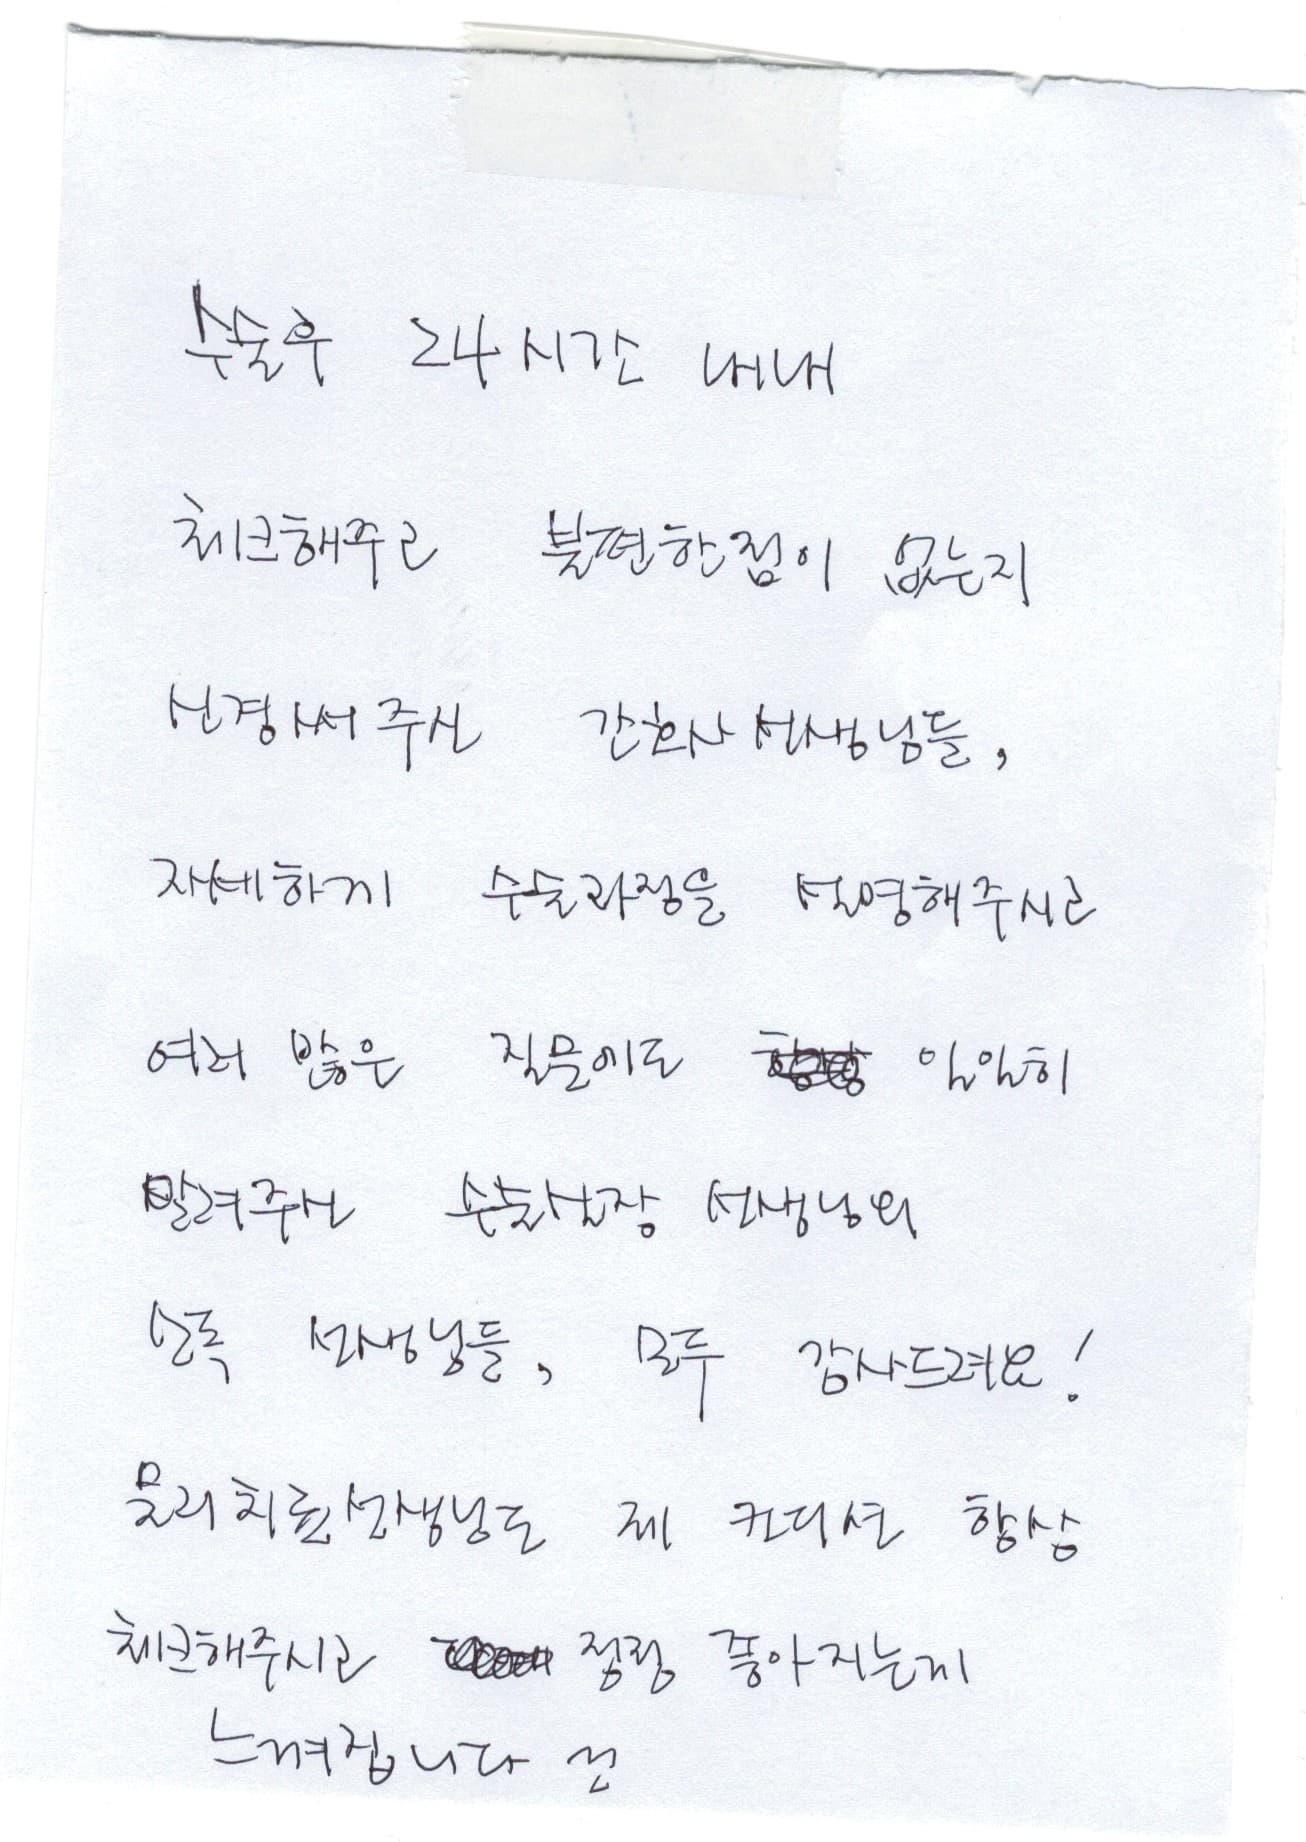 수술후 24시간 내내
체크해주고 불편한점이 없는지
신경써주신 간호사선생님들,
자세하게 수술과정을 설명해주시고
여러 많은 질문에도 일일히
알려주신 수술실장 선생님외
소독 선생님들, 모두 감사드려요!
물리치료선생님도 제 컨디션 항상
체크해주시고 점점 좋아지는게
느껴집니다